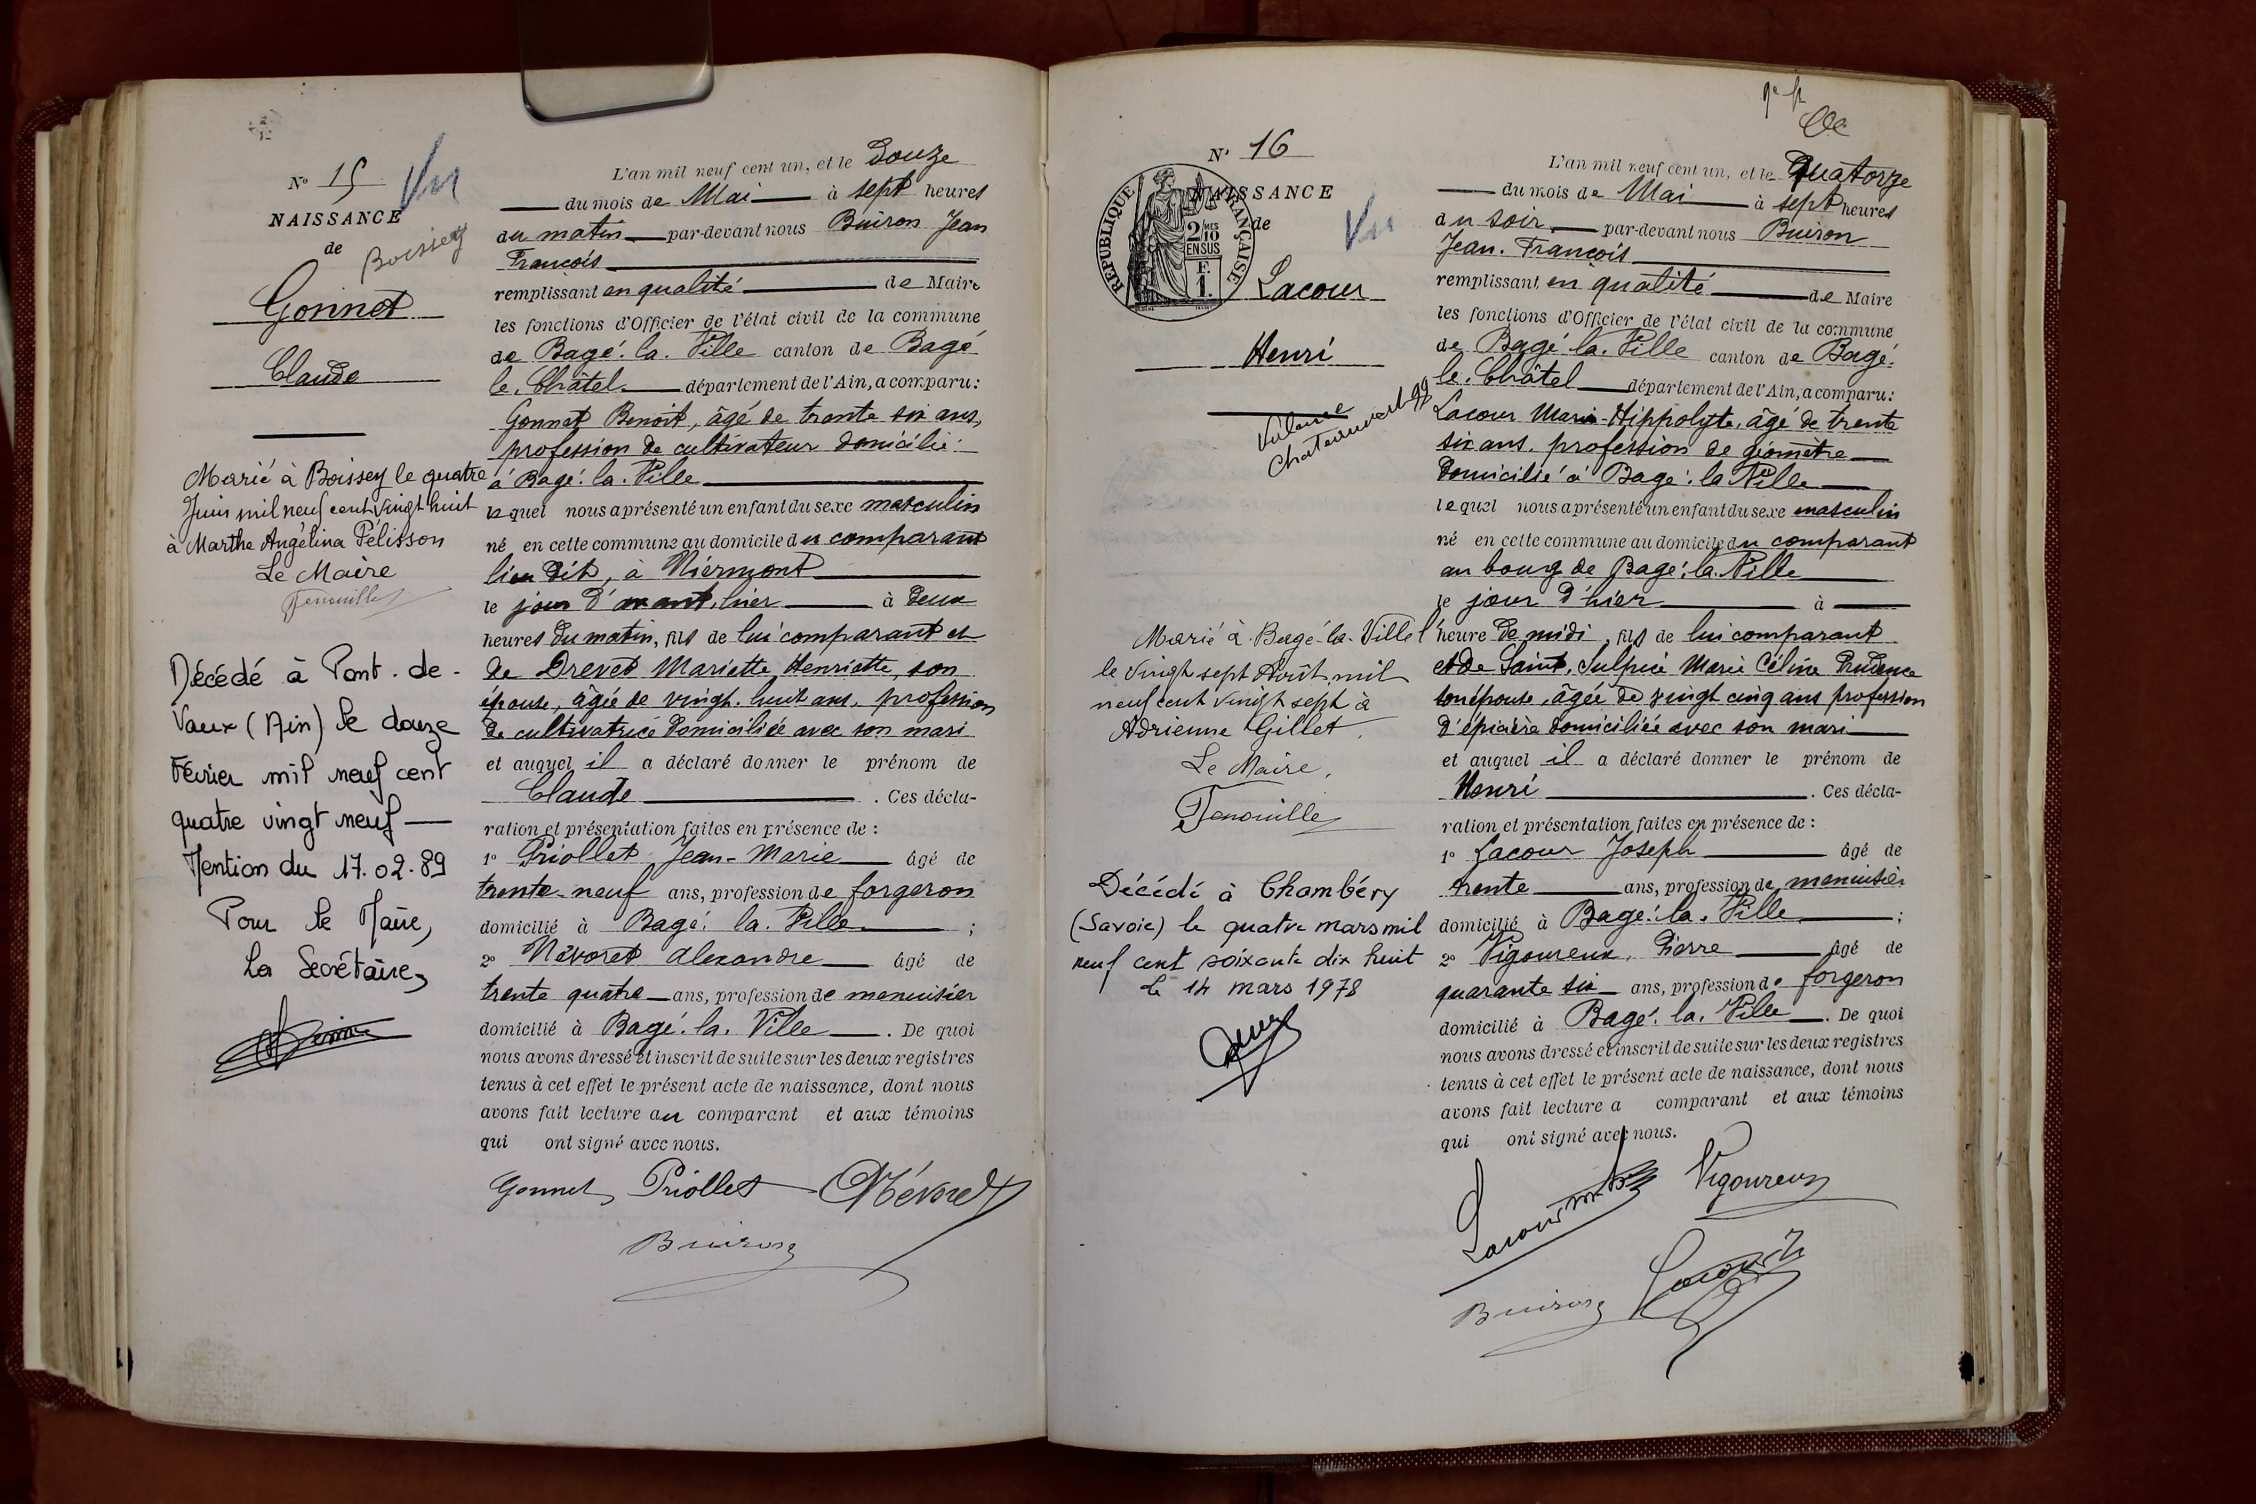 N° 15
Vu
NAISSANCE
de
Boissey
Gonnet
Claude
Marié à Boissey le quatre
Juin mil neuf cent vingt huit
à Marthe Angélina Pélisson
Le Maire
Fenouillet
Décédé à Pont-de-
Vaux (Ain) le douze
Février mil neuf cent
quatre vingt neuf
Mention du 17.02.89
Pour le Maire,
La Secrétaire,
L'an mil neuf cent un, et le Douze
du mois de Mai à sept heures
du matin par-devant nous Buiron Jean
François
remplissant en qualité de Maire
les fonctions d'Officier de l'état civil de la commune
de Bagé-la-Ville canton de Bagé
le-Châtel département de l'Ain, a comparu:
Gonnet Benoit, âgé de trente six ans,
profession de cultivateur domicilié
à Bagé-la-Ville
lequel nous a présenté un enfant du sexe masculin
né en cette commune au domicile du comparant
lieu dit, à Niermont
le jour d'avant hier à deux
heures du matin, fils de lui comparant et
de Drevet Mariette Henriette, son
épouse, âgée de vingt-huit ans, profession
de cultivatrice domiciliée avec son mari
et auquel il a déclaré donner le prénom de
Claude . Ces décla-
ration et présentation faites en présence de :
1° Priollet Jean-Marie âgé de
trente-neuf ans, profession de forgeron
domicilié à Bagé-la-Ville ;
2° Névoret Alexandre âgé de
trente quatre ans, profession de menuisier
domicilié à Bagé-la-Ville . De quoi
nous avons dressé et inscrit de suite sur les deux registres
tenus à cet effet le présent acte de naissance, dont nous
avons fait lecture au comparant et aux témoins
qui ont signé avec nous.
Gonnet Priollet Névoret
Buiron
N° 16
NAISSANCE
de
RÉPUBLIQUE FRANÇAISE
2/10 EN SUS
F. 1.
Vu
Lacour
Henri
Valence
Marié à Bagé-la-Ville
le vingt sept Août mil
neuf cent vingt sept à
Adrienne Gillet.
Le Maire,
Fenouillet
Décédé à Chambéry
(Savoie) le quatre mars mil
neuf cent soixante dix huit
le 14 mars 1978
L'an mil neuf cent un, et le Quatorze
du mois de Mai à sept heures
du soir par-devant nous Buiron
Jean-François
remplissant en qualité de Maire
les fonctions d'Officier de l'état civil de la commune
de Bagé-la-Ville canton de Bagé-
le-Châtel département de l'Ain, a comparu:
Lacour Marie-Hippolyte, âgé de trente
six ans, profession de géomètre
domicilié à Bagé-la-Ville
lequel nous a présenté un enfant du sexe masculin
né en cette commune au domicile du comparant
au bourg de Bagé-la-Ville
le jour d'hier à
l'heure de midi, fils de lui comparant
et de Saint-Sulpice Marie Céline Prudence
son épouse, âgée de vingt cinq ans profession
d'épicière domiciliée avec son mari
et auquel il a déclaré donner le prénom de
Henri . Ces décla-
ration et présentation faites en présence de :
1° Lacour Joseph âgé de
trente ans, profession de menuisier
domicilié à Bagé-la-Ville ;
2° Vigoureux, Pierre âgé de
quarante six ans, profession de forgeron
domicilié à Bagé-la-Ville . De quoi
nous avons dressé et inscrit de suite sur les deux registres
tenus à cet effet le présent acte de naissance, dont nous
avons fait lecture a comparant et aux témoins
qui ont signé avec nous.
Lacour Vigoureux
Buiron Lacour